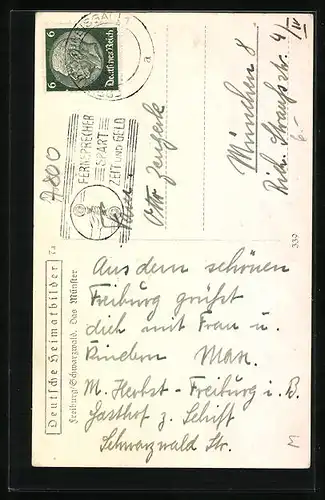 Deutsche Heimatbilder 7a
Freiburg/Schwarzwald. Das Münster
6 6
Deutsches Reich
a
FERNSPRECHER
SPART
ZEIT UND GELD
7800
Otto
München 8
Rich. Straußstr. 4/IV
339
Aus dem schönen
Freiburg grüßt
dich mit Frau u.
Kindern Max.
M. Herbst - Freiburg i. B.
Gasthof z. Schiff
Schwarzwald Str.
M